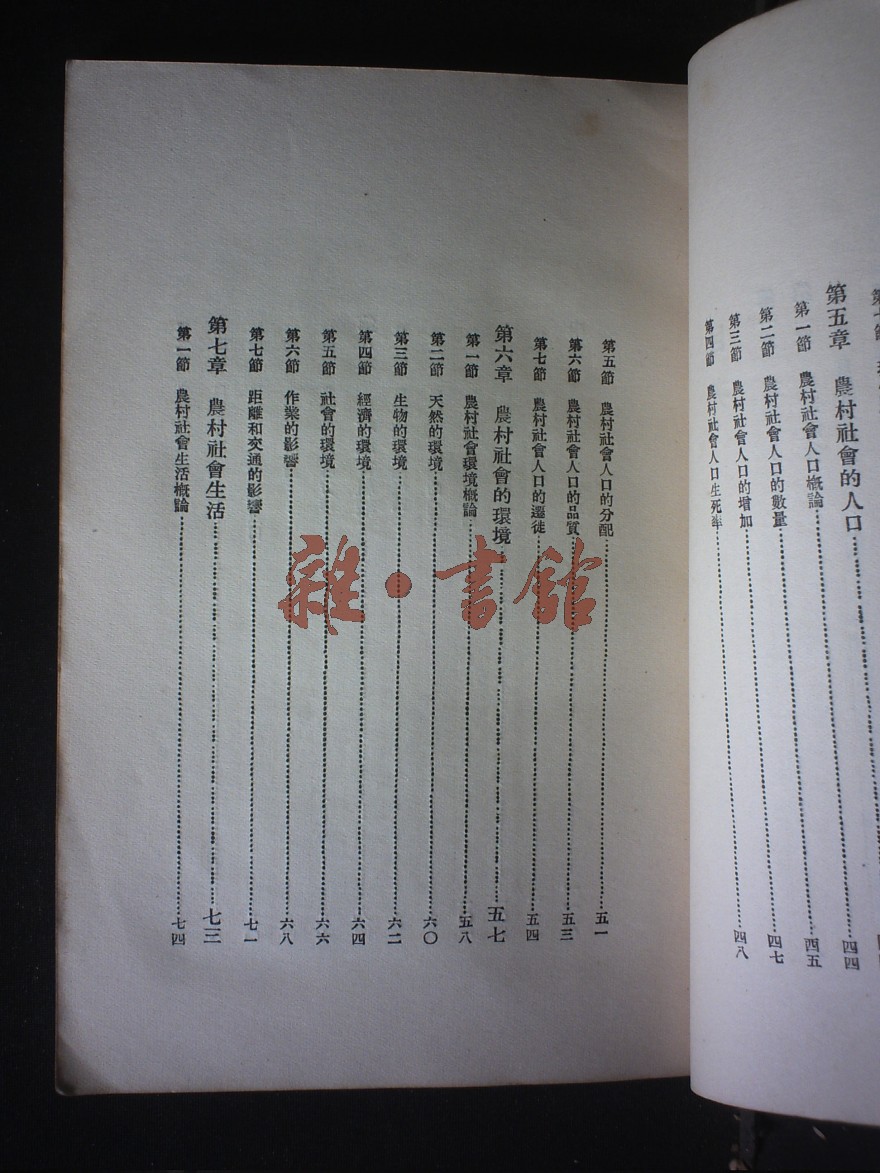 第五章　農村社會的人口……四四
第一節　農村社會人口概論……四五
第二節　農村社會人口的數量……四七
第三節　農村社會人口的增加
第四節　農村社會人口生死率……四八
第五節　農村社會人口的分配……五一
第六節　農村社會人口的品質……五三
第七節　農村社會人口的遷徙……五四
第六章　農村社會的環境……五七
第一節　農村社會環境概論……五八
第二節　天然的環境……六〇
第三節　生物的環境……六二
第四節　經濟的環境……六四
第五節　社會的環境……六六
第六節　作業的影響……六八
第七節　距離和交通的影響……七一
第七章　農村社會生活……七三
第一節　農村社會生活概論……七四
雜·書館